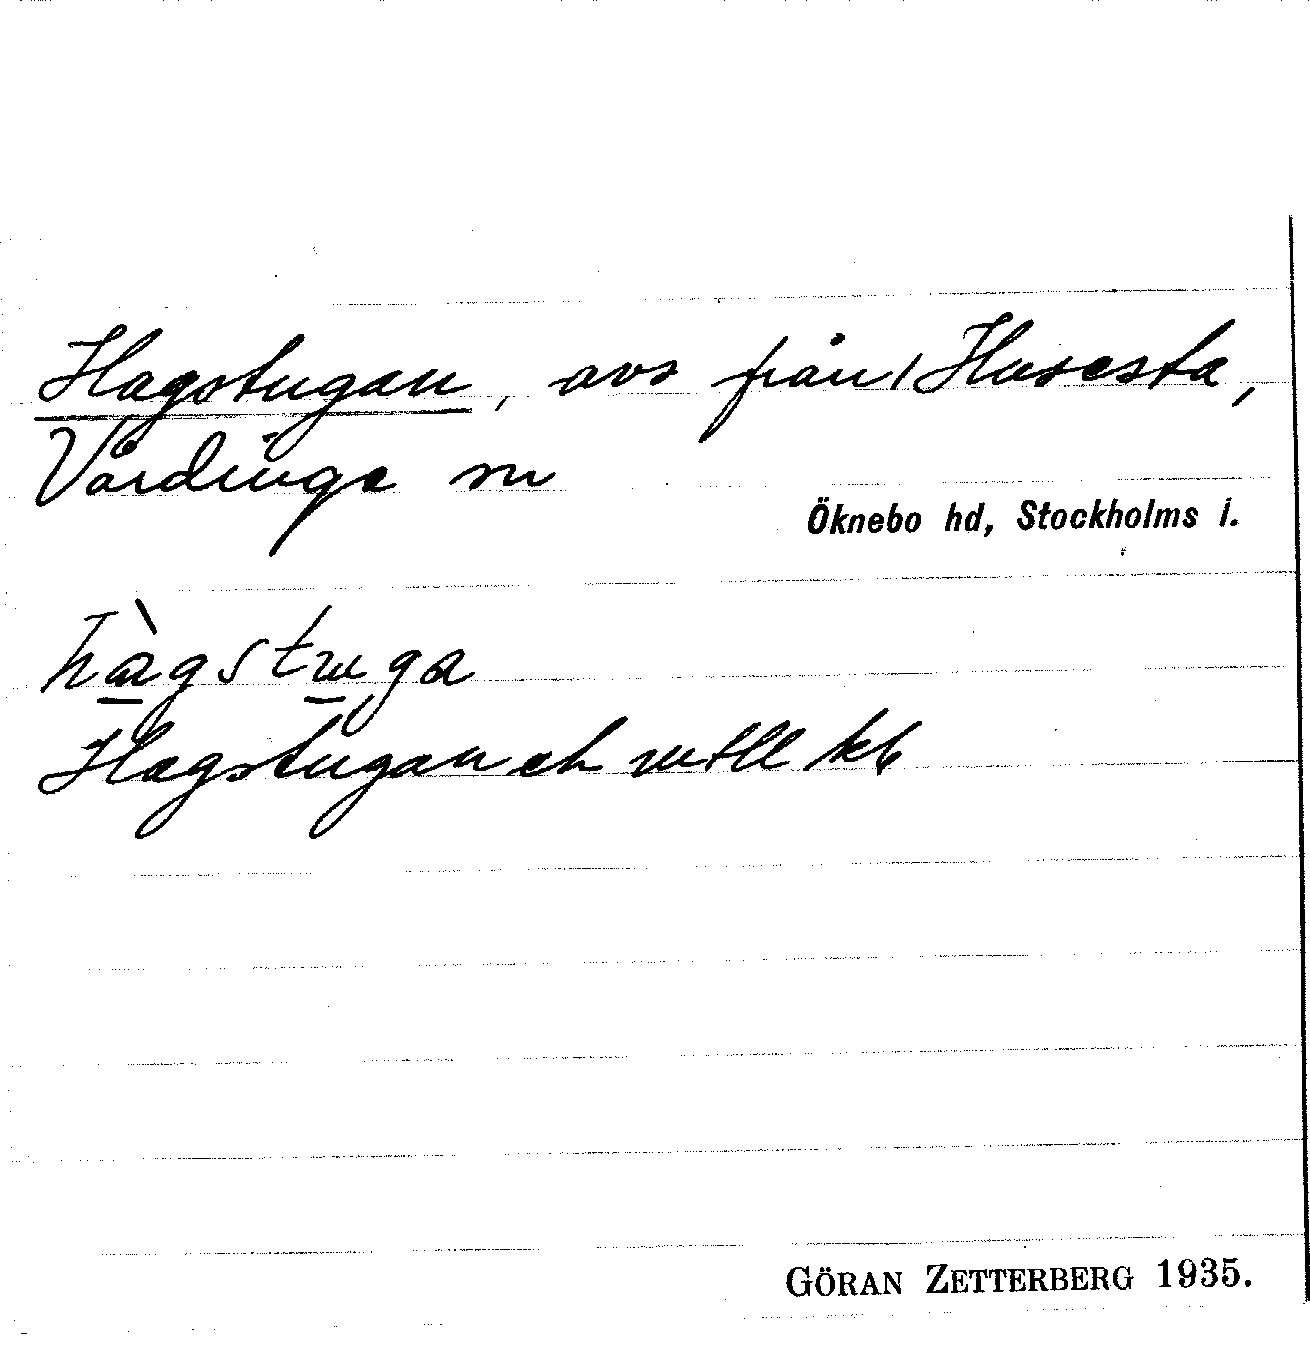 Hagstugan, avs från Husesta,
Vårdinge sn
Öknebo hd, Stockholms l.
hàgstuga
Hagstugan
GÖRAN ZETTERBERG 1935.